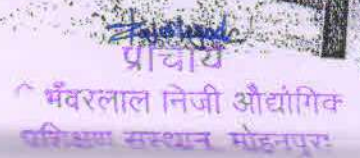 प्राचार्य
भँवरलाल निजी औद्योगिक
प्रशिक्षण संस्थान मोहनपुरा